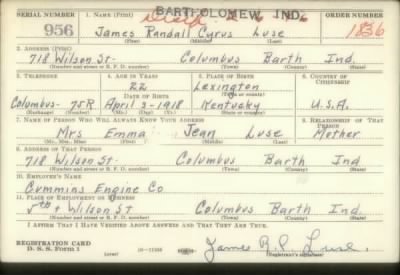 BARTHOLOMEW, IND.
SERIAL NUMBER 1. NAME (Print) ORDER NUMBER
956 James Randall Cyrus Luse 1836
(First) (Middle) (Last)
2. ADDRESS (Print)
718 Wilson St- Columbus Barth Ind.
(Number and street or R. F. D. number) (Town) (County) (State)
3. TELEPHONE 4. AGE IN YEARS 5. PLACE OF BIRTH 6. COUNTRY OF CITIZENSHIP
22 Lexington
DATE OF BIRTH (Town or county)
Columbus- 75R April 3-1918 Kentucky U.S.A.
(Exchange) (Number) (Mo.) (Day) (Yr.) (State or country)
7. NAME OF PERSON WHO WILL ALWAYS KNOW YOUR ADDRESS 8. RELATIONSHIP OF THAT PERSON
Mrs Emma Jean Luse Mother
(Mr., Mrs., Miss) (First) (Middle) (Last)
9. ADDRESS OF THAT PERSON
718 Wilson St. Columbus Barth Ind
(Number and street or R. F. D. number) (Town) (County) (State)
10. EMPLOYER'S NAME
Cummins Engine Co
11. PLACE OF EMPLOYMENT OR BUSINESS
5th + Wilson St Columbus Barth Ind.
(Number and street or R. F. D. number) (Town) (County) (State)
I AFFIRM THAT I HAVE VERIFIED ABOVE ANSWERS AND THAT THEY ARE TRUE.
REGISTRATION CARD
D. S. S. Form 1 (over) (Registrant's signature)
James R. C. Luse.